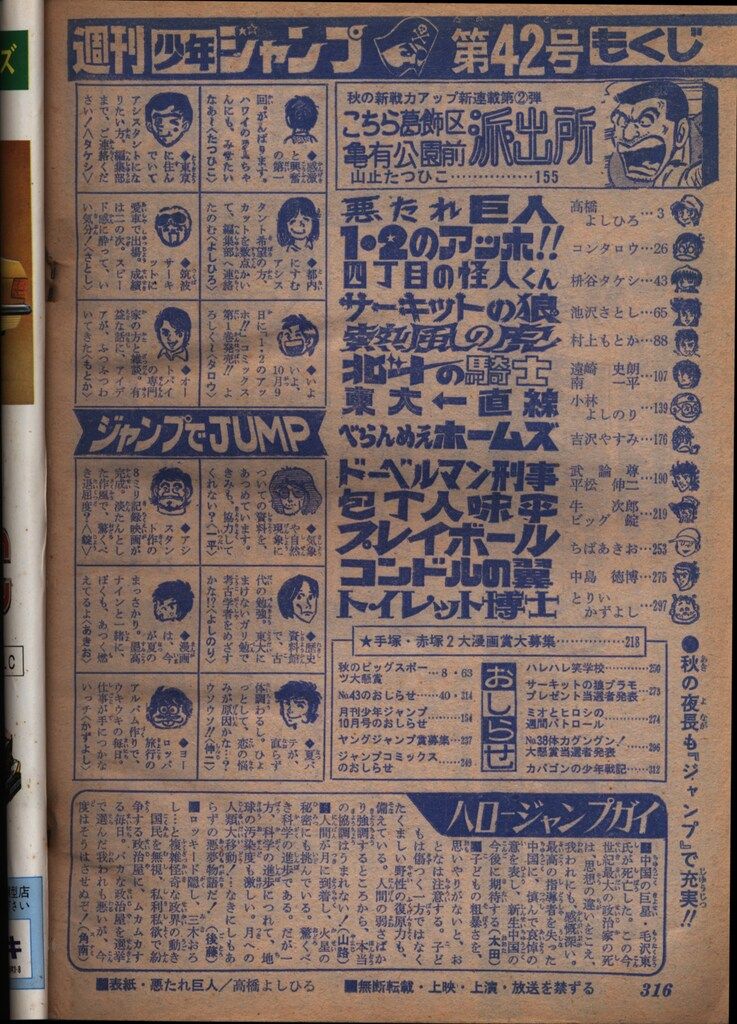 週刊少年ジャンプ 第42号 もくじ
秋の新戦力アップ新連載第②弾
こちら葛飾区
亀有公園前
派出所
山止たつひこ……………155
悪たれ巨人 高橋よしひろ…3
1・2のアッホ!! コンタロウ…26
四丁目の怪人くん 枡谷タケシ…43
サーキットの狼 池沢さとし…65
熱風の虎 村上もとか…88
北斗の騎士 遠崎史朗 南一平…107
東大一直線 小林よしのり…139
べらんめえホームズ 吉沢やすみ…176
ドーベルマン刑事 武論尊 平松伸二…190
包丁人味平 牛次郎 ビッグ錠…219
プレイボール ちばあきお…253
コンドルの翼 中島徳博…275
トイレット博士 とりいかずよし…297
★手塚・赤塚2大漫画賞大募集…………218
おしらせ
秋のビッグスポーツ大懸賞…8・63
№43のおしらせ……40・314
月刊少年ジャンプ10月号のおしらせ……184
ヤングジャンプ賞募集…237
ジャンプコミックスのおしらせ……249
ハレハレ笑学校………250
サーキットの狼プラモプレゼント当選者発表…273
ミオとヒロシの週間パトロール………274
№38体力グングン!大懸賞当選者発表……296
カバゴンの少年戦記…312
●秋の夜長も『ジャンプ』で充実!!
◆感激と興奮の第一回。がんばります。ハワイの『オ』ちゃんにも、みせたいなあ!〈たつひこ〉
◆東京に住んでいてアシスタントになりたい方、編集部まで、ご連絡ください!〈タケシ〉
◆都内にすむアシスタント希望の方、カットを数点かいて、編集部へ連絡たのむ〈よしひろ〉
◆筑波サーキットに愛車で出場。成績は二の次。スピード感に酔って、いい気分!〈さとし〉
◆いよいよ、10月9日に『1・2のアッホ!!』コミックス第1巻発売!!よろしく!〈タロウ〉
◆オートバイの専門家の方と雑談。有益な話に、アイデアが、ふつふつわいてきた〈もとか〉
ジャンプでJUMP
◆気象や自然現象についての資料を、あつめています。きみも、協力してくれない?〈一平〉
◆アシスタント作の8ミリ記録映画が完成。淡たんとした作風で、驚くべき退屈度?〈錠〉
◆歴史資料館で、古代の勉強。東大にまけないガリ勉で考古学者をめざすかな!?〈よしのり〉
◆漫画は、今が夏のまっさかり。墨高ナインと一緒に、ぼくも、あつく燃えてるよ〈あきお〉
◆夏バテが、直らず体調わるし。ひょっとして、恋の悩みが原因かな…?ウッウソ!!〈伸二〉
◆ヨーロッパ旅行のアルバム作りで、ウキウキの毎日。仕事が手につかないッチ〈かずよし〉
ハロージャンプガイ
■中国の巨星、毛沢東氏が死亡した。この今世紀最大の政治家の死は、思想の違いをこえ、我われにも、感慨深い。最高の指導者を失った中国に、慎んで哀悼の意を表し、新生中国の今後に期待する〈太田〉
■子どもの粗暴さを、思いやりがないと、おとなは注意する。子どもは傷つく一方ではなくたくましい野性の復原力も、備えている。人間の弱さばかり強調するところから、本当の協調はうまれない。〈山路〉
■人間が月に到着し、火星の秘密にも挑んでいる。驚くべき科学の進歩である。だが一方、科学の進歩につれて、地球の汚染度も激しい。月への人類大移動!…なきにしもあらずの悪夢物語だ!〈後藤〉
■ロッキード隠し、三木おろし…と複雑怪奇な政界の動き 国民を無視、私利私欲で紛争する政治屋に、ムカムカする毎日。バカな政治屋を選挙で選んだ我われも悪いが、今度はそうはさせぬゾ!〈角南〉
■表紙・悪たれ巨人/高橋よしひろ
■無断転載・上映・上演・放送を禁ずる
316